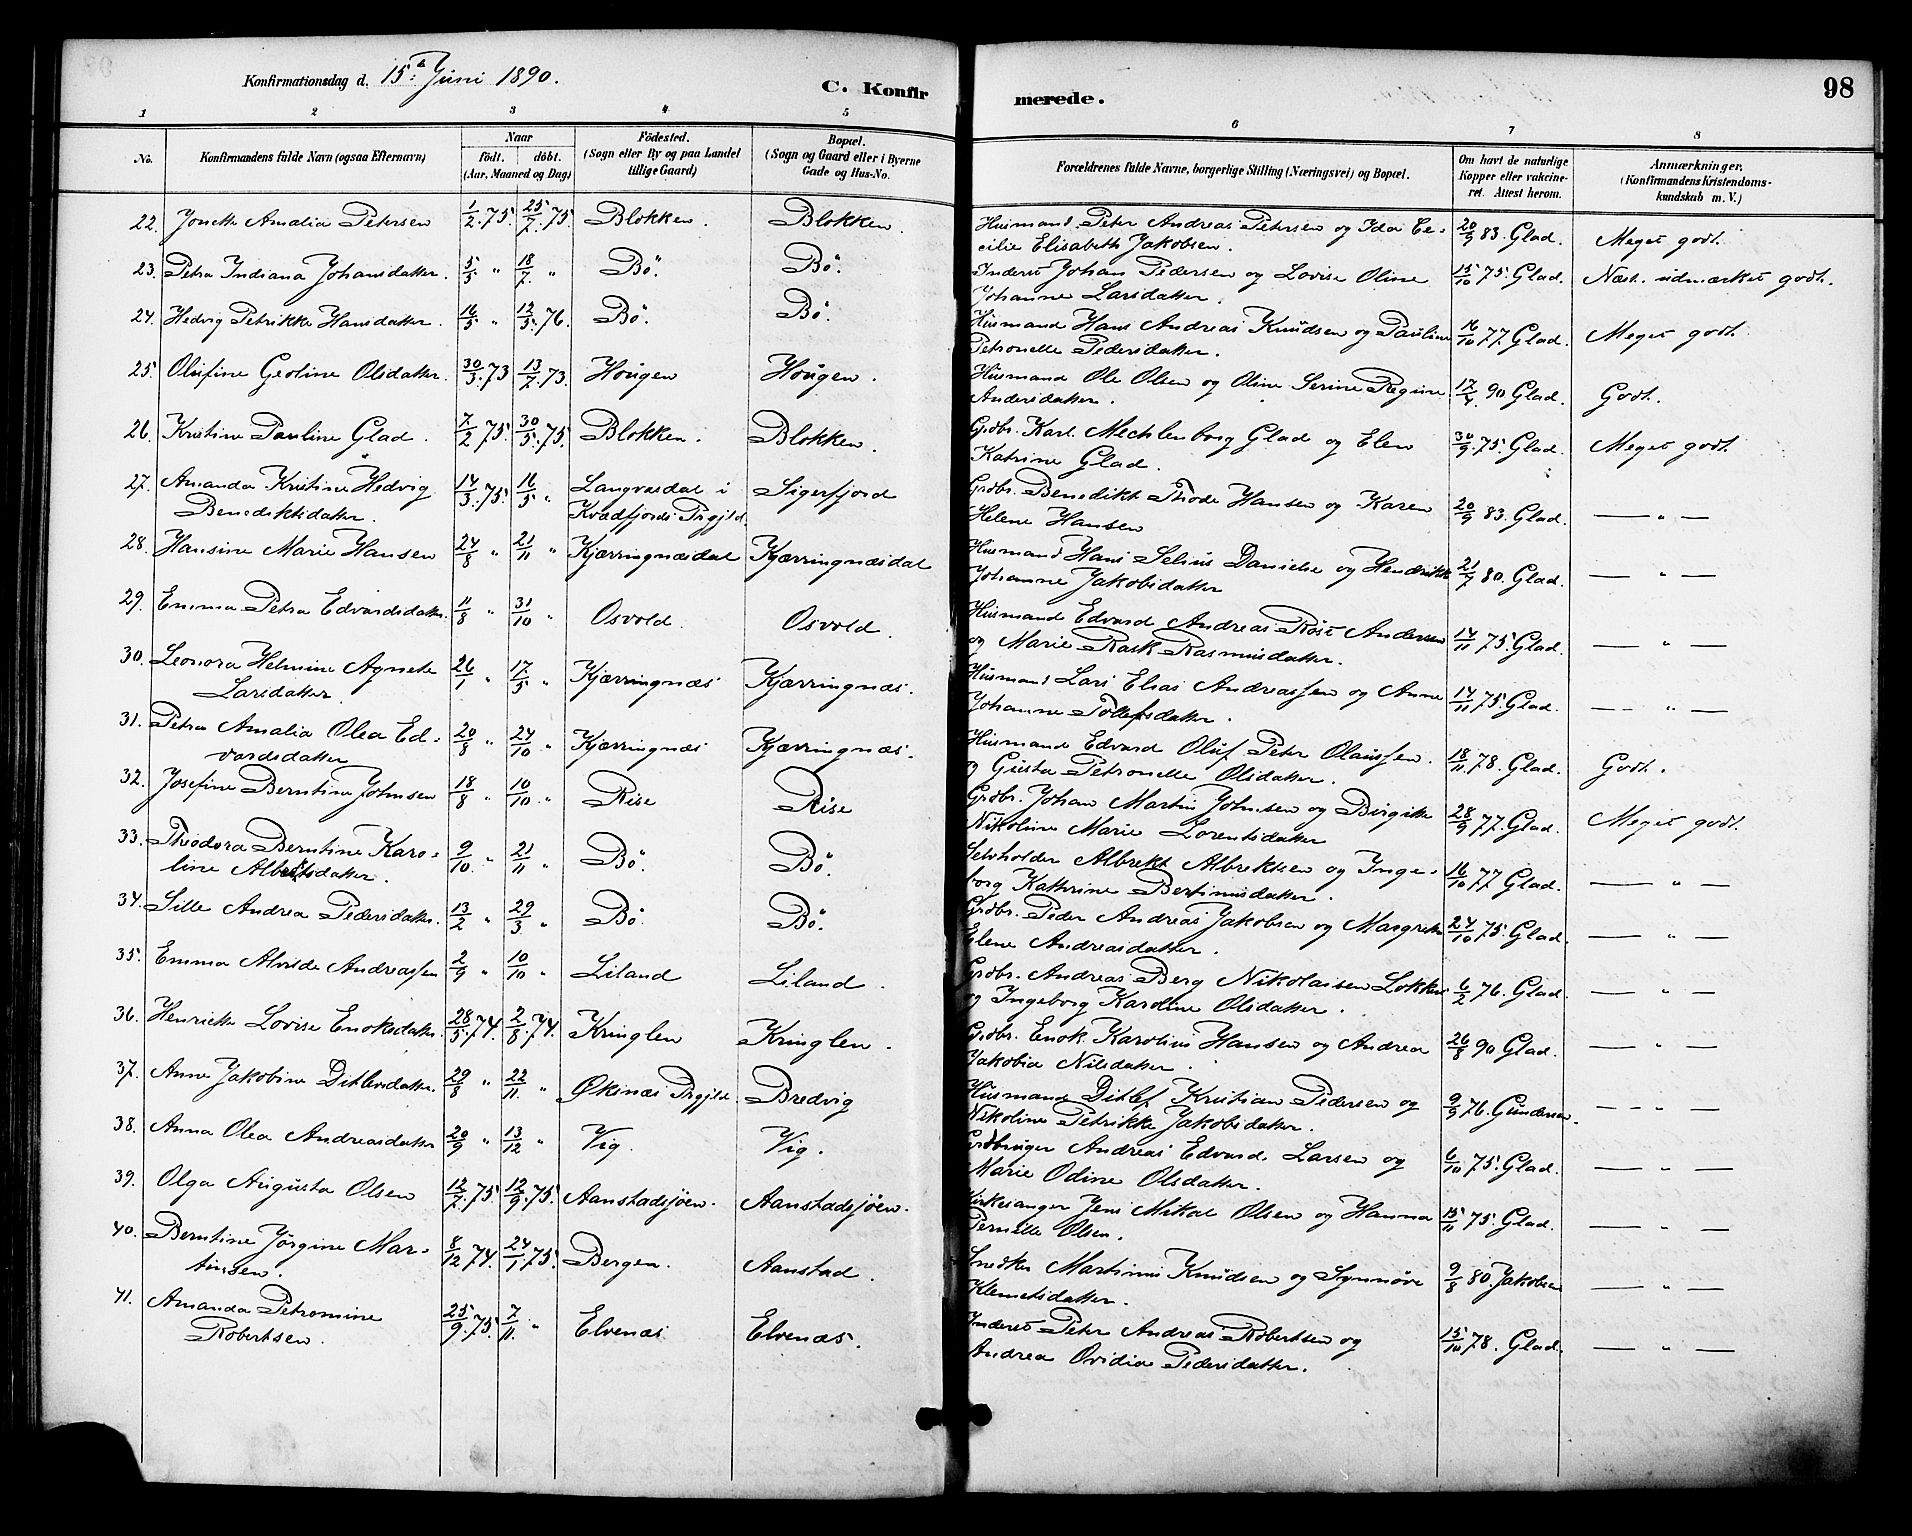 Konfirmationsdag d. 15de Juni 1890.
C. Konfirmerede.
98
1 2 3 4 5 6 7 8
No. Konfirmandens fulde Navn (ogsaa Efternavn) Naar født. døbt. (Aar, Maaned og Dag) Födested. (Sogn eller By og paa Landet tillige Gaard) Bopæl. (Sogn og Gaard eller i Byerne Gade og Hus-No. Forældrenes fulde Navne, borgerlige Stilling (Næringsvei) og Bopæl. Om havt de naturlige Kopper eller vakcineret. Attest herom. Anmærkninger. (Konfirmandens Kristendomskundskab m. V.)
22. Jonette Amalia Petersen 1/2.75. 25/7.75. Blokken. Blokken. Husmand Peter Andreas Petersen og Ida Ce-
cilie Elisabeth Jakobsen. 20/9 83. Glad. Meget godt.
23. Petra Indiana Johansdatter. 5/5 " 18/7. " Bö. Bö. Inderst Johan Pedersen og Lovise Oline
Johanne Larsdatter. 15/10 75. Glad. Næst. udmærket godt.
24. Hedvig Petrikke Hansdatter. 16/5 " 12/5.76. Bö. Bö. Husmand Hans Andreas Knudsen og Pauline
Petronelle Pedersdatter. 16/10 77 Glad. Meget godt.
25. Olufine Gerline Olsdatter. 30/3.73 13/7.73. Hougen Hougen. Husmand Ole Olsen og Oline Serine Regine
Andersdatter. 17/4. 90 Glad. Godt.
26. Kristine Pauline Glad. 7/2 75. 30/5.75. Blokken. Blokken. Grdbr. Karl Mechlenborg Glad og Elen
Katrine Glad. 30/9.75. Glad. Meget godt.
27. Amanda Kristine Hedvig
Benediktsdatter. 14/3.75. 16/5 " Langvasdal i
Kvædfjords Prgjld. Sigerfjord Grdbr. Benedikt Thode Hansen og Karen
Helene Hansen 20/9 83. Glad. — " —
28. Hansine Marie Hansen 24/8 " 21/11 " Kjærringnæsdal Kjærringnæsdal Husmand Hans Selius Danielse og Hendrikke
Johanne Jakobsdatter 21/7 80. Glad. — " —
29. Emma Petra Edvardsdatter. 11/8 " 31/10 " Osvold. Osvold. Husmand Edvard Andreas Röst Andersen
og Marie Rask Rasmusdatter. 14/11 75. Glad. — " —
30. Leonora Helmine Agnete
Larsdatter. 26/1 " 17/5 " Kjærringnæs Kjærringnæs. Husmand Lars Elias Andreassen og Anne
Johanne Tollefsdatter. 14/11 75. Glad. — " —
31. Petra Amalia Olea Ed-
vardsdatter 20/8 " 24/10 " Kjærringnæs Kjærringnæs. Husmand Edvard Oluf Peter Olaussen
og Gusta Petronelle Olsdatter. 18/11.78. Glad. Godt.
32. Josefine Berntine Johnsen 18/8 " 10/10. " Rise Rise Grdbr. Johan Martin Johnsen og Birgitte
Nikoline Marie Lorentsdatter 28/9 77. Glad. Meget godt.
33. Theodora Berntine Karo-
line Albertsdatter. 9/10. " 21/11 " Bö. Bö. Selvholder Albrekt Albrektsen og Inge-
borg Kathrine Bertinusdatter. 16/10 77 Glad. — " —
34. Sille Andrea Pedersdatter. 13/2 " 29/3 " Bö. Bö. Grdbr. Peder Andreas Jakobsen og Margrete
Elene Andreasdatter. 24/10 75. Glad. — " —
35. Emma Alvilde Andreassen 2/9 " 10/10 " Liland Liland. Grdbr. Andreas Berg Nikolaisen Lokken
og Ingeborg Karoline Olsdatter. 6/2 76. Glad. — " —
36. Henriette Lovise Enoksdatter. 28/5.74. 2/8.74. Kringlen Kringlen. Grdbr. Enok Karolius Hansen og Andrea
Jakobia Nilsdatter. 26/8 90 Glad. — " —
37. Anne Jakobine Ditlevsdatter. 29/8 " 22/11. " Øksnæs Prgjld. Bredvig Husmand Ditlef Kristian Pedersen og
Nikoline Petrikke Jakobsdatter. 9/9 76. Gundersen. — " —
38. Anna Olea Andreasdatter 20/9 " 13/12 " Vig. Vig. Grdbruger Andreas Edvard Larsen og
Marie Odine Olsdatter. 6/10 75. Glad. — " —
39. Olga Augusta Olsen 12/7.75. 12/9.75. Aanstadsjöen. Aanstadsjöen. Kirkesanger Jens Mikal Olsen og Hanna
Pernille Olsen. 15/11 75. Glad. — " —
40. Berntine Jörgine Mar-
tinsen. 8/12 74. 24/1.75. Bergen. Aanstad. Snedker Martinus Knudsen og Synnöve
Klemetsdatter. 9/8 80. Jakobsen — " —
41. Amanda Petromine
Robertsen. 25/9.75. 7/11. " Elvenæs Elvenæs. Inderst Peter Andreas Robertsen og
Andrea Ovidia Pedersdatter. 15/10 78. Glad. — " —